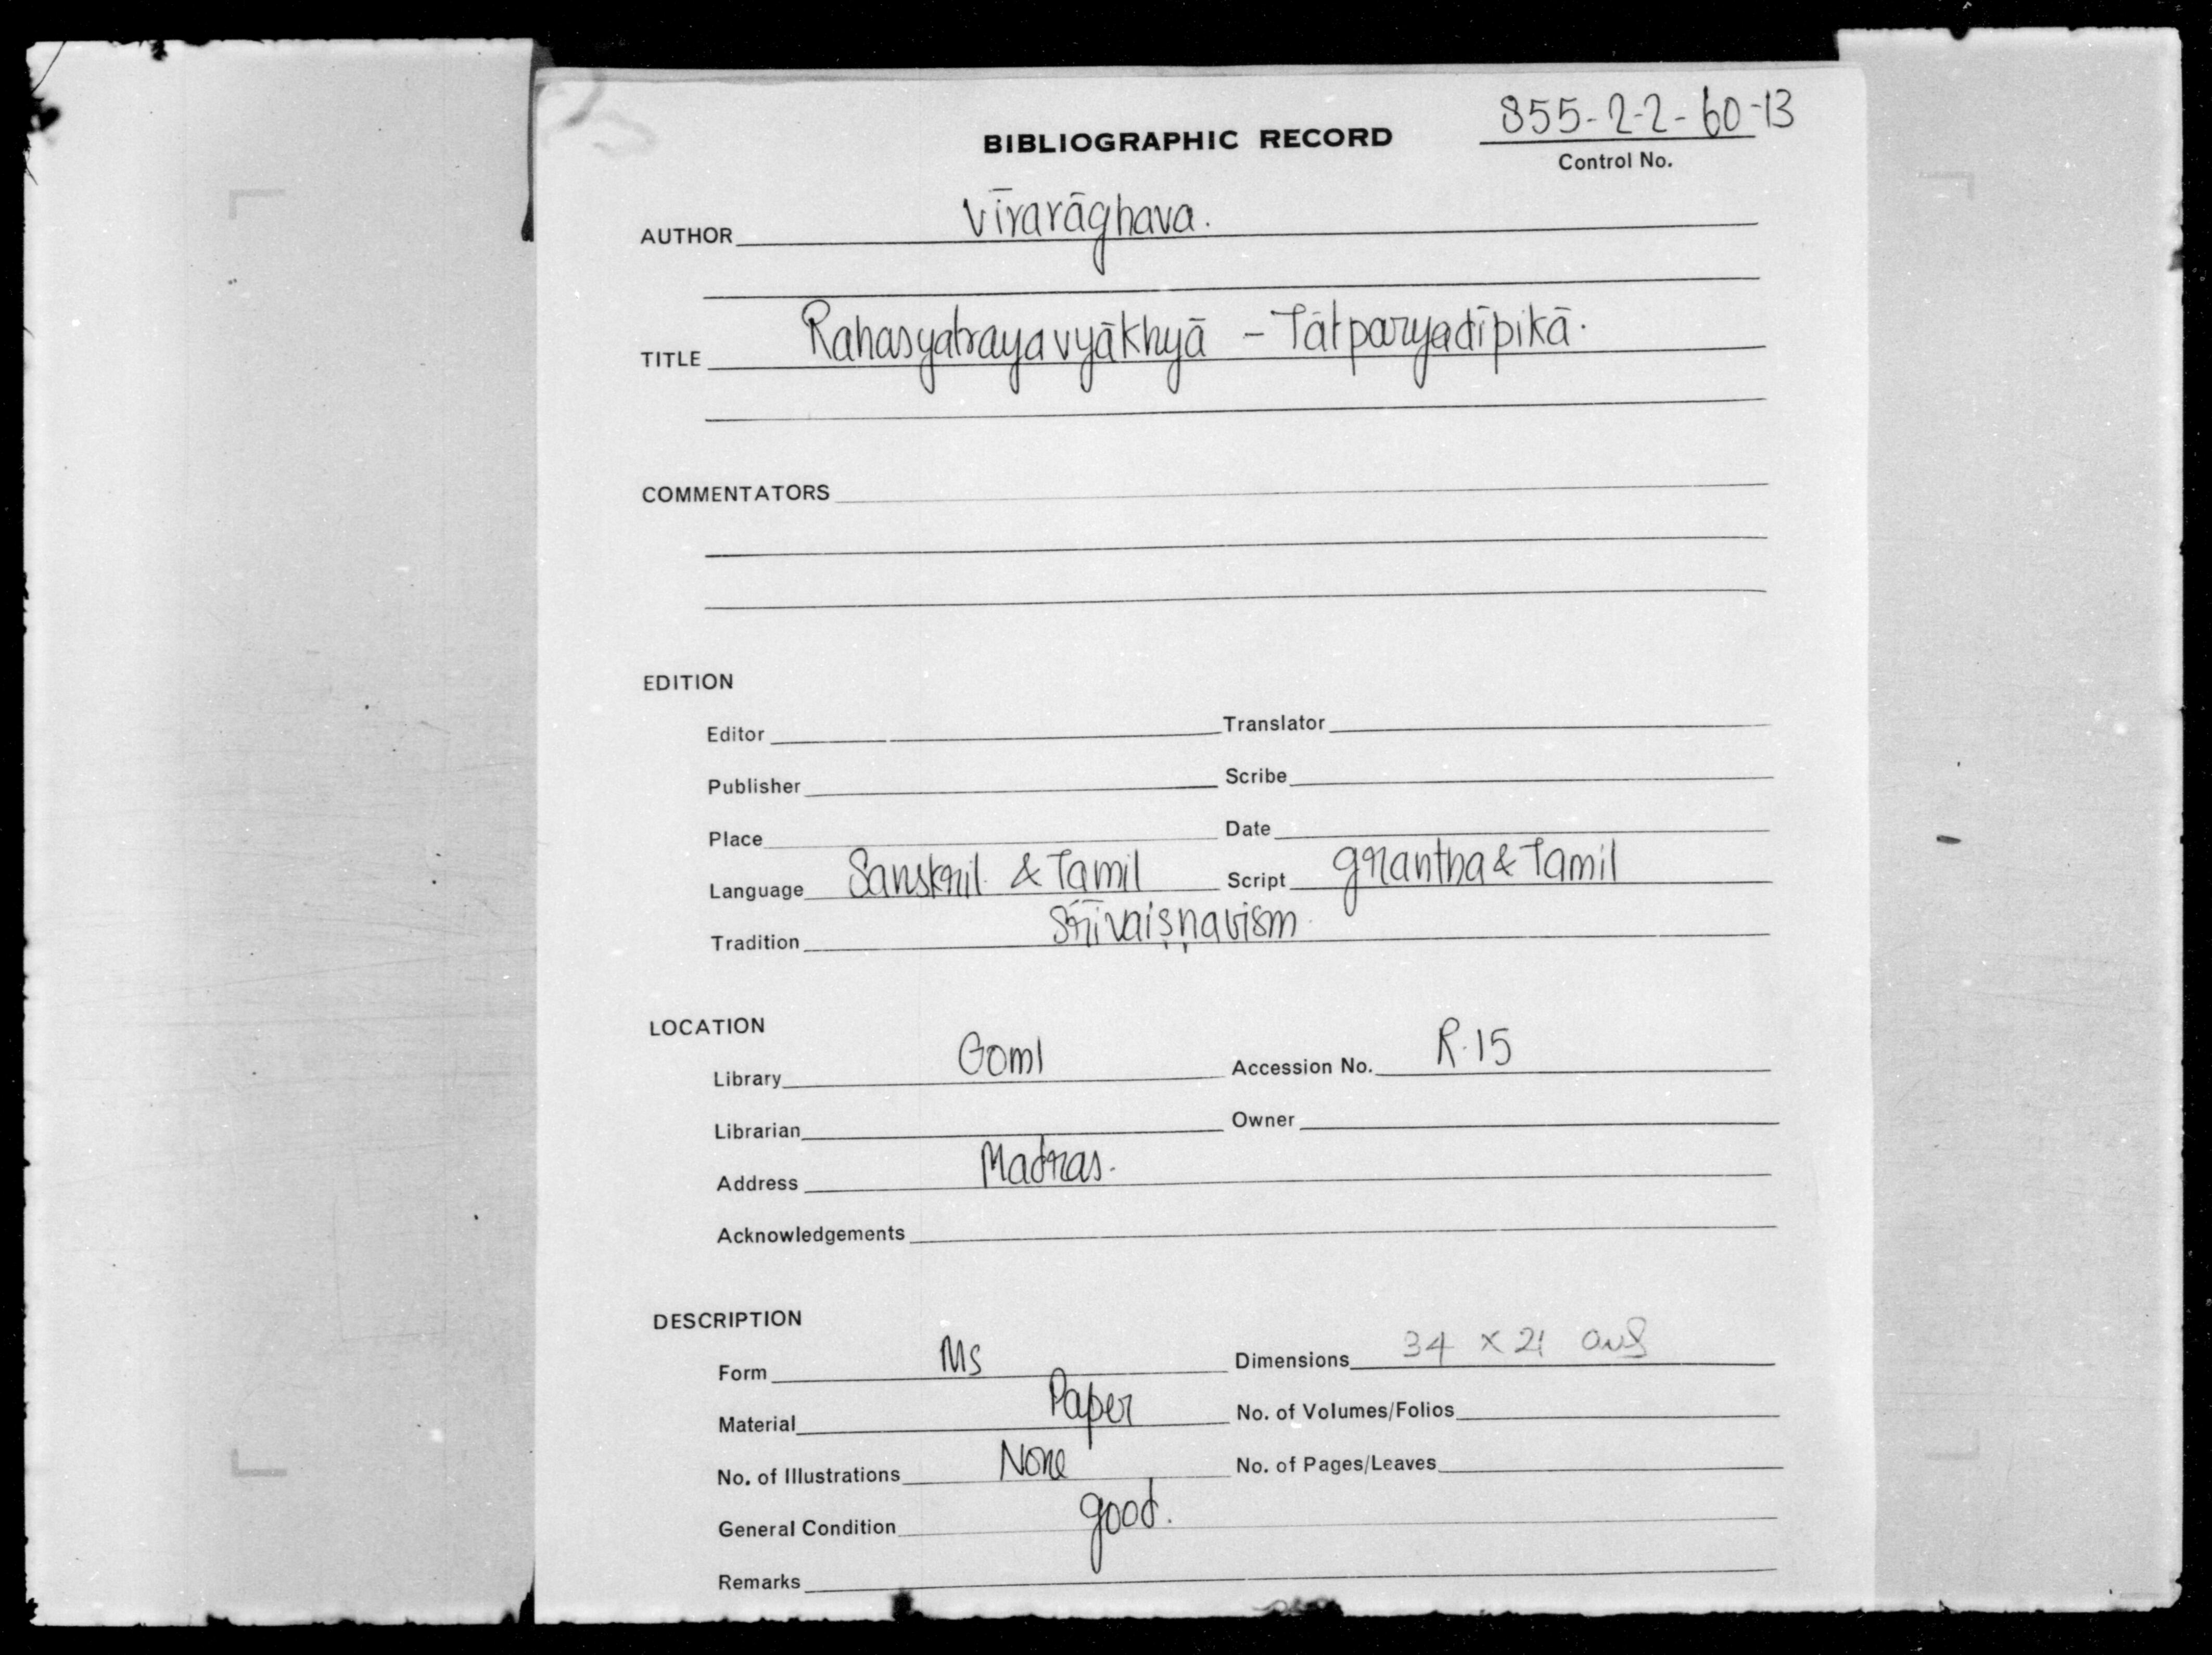 855-2-2-60-13
BIBLIOGRAPHIC RECORD
Control No.
AUTHOR Vīrarāghava.
TITLE Rahasyatrayavyākhyā - Tātparyadīpikā.
COMMENTATORS
EDITION
Editor Translator
Publisher Scribe
Place Date
Language Sanskrit & Tamil Script grantha & Tamil
Tradition Srīvaiṣṇavism
LOCATION
Library Goml Accession No. R.15
Librarian Owner
Address Madras.
Acknowledgements
DESCRIPTION
Form Ms Dimensions 34 x 21
Material Paper No. of Volumes/Folios
No. of Illustrations None No. of Pages/Leaves
General Condition good.
Remarks